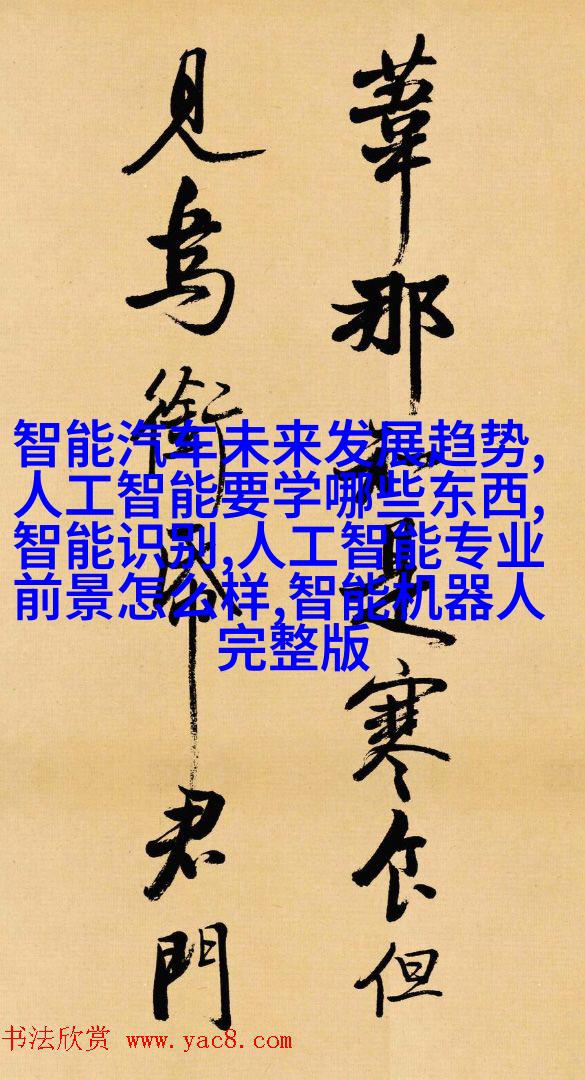 葦那是寒食但
見烏銜君門
智能汽车未来发展趋势,
人工智能要学哪些东西,
智能识别,人工智能专业
前景怎么样,智能机器人
完整版
书法欣赏 www.yac8.com